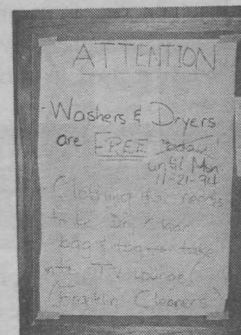 ATTENTION
- Washers & Dryers
are FREE today!
until Mon.
11-21-94
- Clothing if needs
to be Dry Clean
bag & take
into TV Lounge
(Franklin Cleaners)